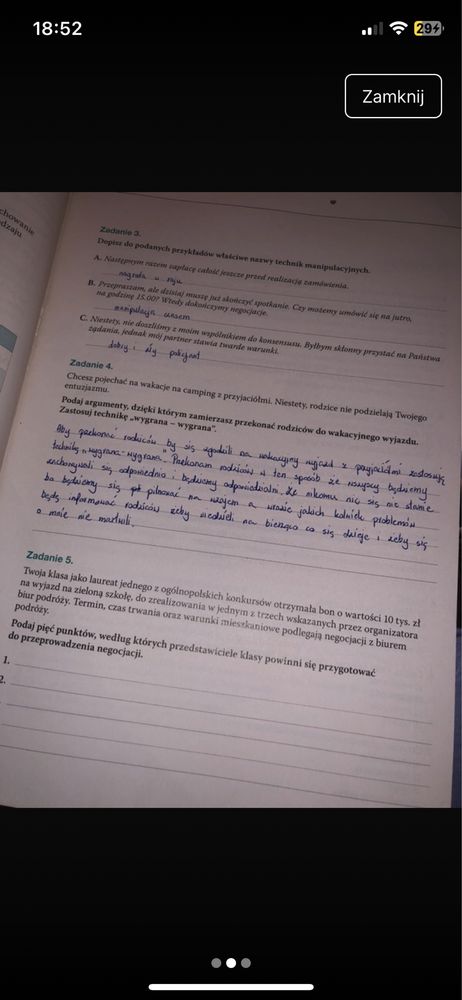 18:52
29
Zamknij
chowanie
dzaju
Zadanie 3.
Dopisz do podanych przykładów właściwe nazwy technik manipulacyjnych.
A. Następnym razem zapłacę całość jeszcze przed realizacją zamówienia.
nagroda w raju
B. Przepraszam, ale dzisiaj muszę już skończyć spotkanie. Czy możemy umówić się na jutro,
na godzinę 15.00? Wtedy dokończymy negocjacje.
manipulacja czasem
C. Niestety, nie doszliśmy z moim wspólnikiem do konsensusu. Byłbym skłonny przystać na Państwa
żądania, jednak mój partner stawia twarde warunki.
dobry i zły policjant
Zadanie 4.
Chcesz pojechać na wakacje na camping z przyjaciółmi. Niestety, rodzice nie podzielają Twojego
entuzjazmu.
Podaj argumenty, dzięki którym zamierzasz przekonać rodziców do wakacyjnego wyjazdu.
Zastosuj technikę „wygrana – wygrana”.
Aby przekonać rodziców by się zgodzili na wakacyjny wyjazd z przyjaciółmi zastosuję
technikę „wygrana-wygrana”. Przekonam rodziców w ten sposób że wszyscy będziemy
zachowywali się odpowiednio i będziemy odpowiedzialni, że nikomu nic się nie stanie
bo będziemy się pilnować na wzajem a wrazie jakich kolwiek problemów
będę informować rodziców żeby wiedzieli na bieżąco co się dzieje i żeby się
o mnie nie martwili.
Zadanie 5.
Twoja klasa jako laureat jednego z ogólnopolskich konkursów otrzymała bon o wartości 10 tys. zł
na wyjazd na zieloną szkołę, do zrealizowania w jednym z trzech wskazanych przez organizatora
biur podróży. Termin, czas trwania oraz warunki mieszkaniowe podlegają negocjacji z biurem
podróży.
Podaj pięć punktów, według których przedstawiciele klasy powinni się przygotować
do przeprowadzenia negocjacji.
1.
2.